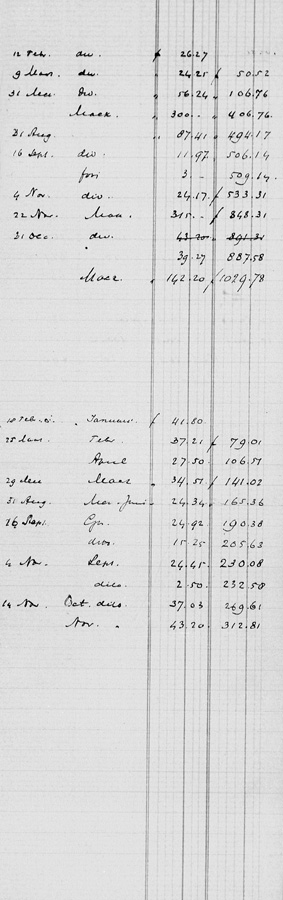 12 Febr. div. f 26.27
9 Mars. div. „ 24.25 f 50.52
31 Mei Div. „ 56.24 „ 106.76
Maex. „ 300.- „ 406.76
31 Aug. „ 87.41 „ 494.17
16 Sept. div. 11.97 „ 506.14
3 - 509.14
4 Nov. div. 24.17 f 533.31
22 Nov. 315.- f 848.31
31 Dec. div. 43.20 891.31
39.27 887.58
Maex. „ 142.20 f 1029.78
Januari f 41.80
25 Febr. 37.21 f 79.01
April 27.50 106.51
29 Mei „ 34.51 f 141.02
31 Aug. Mei-Juni 24.34 „ 165.36
26 Sept. 24.92 190.38
15.25 205.63
4 Nov. Sept. 24.45 230.08
dito 2.50 232.58
14 Nov. Oct. dito 37.03 269.61
Nov. „ 43.20 312.81